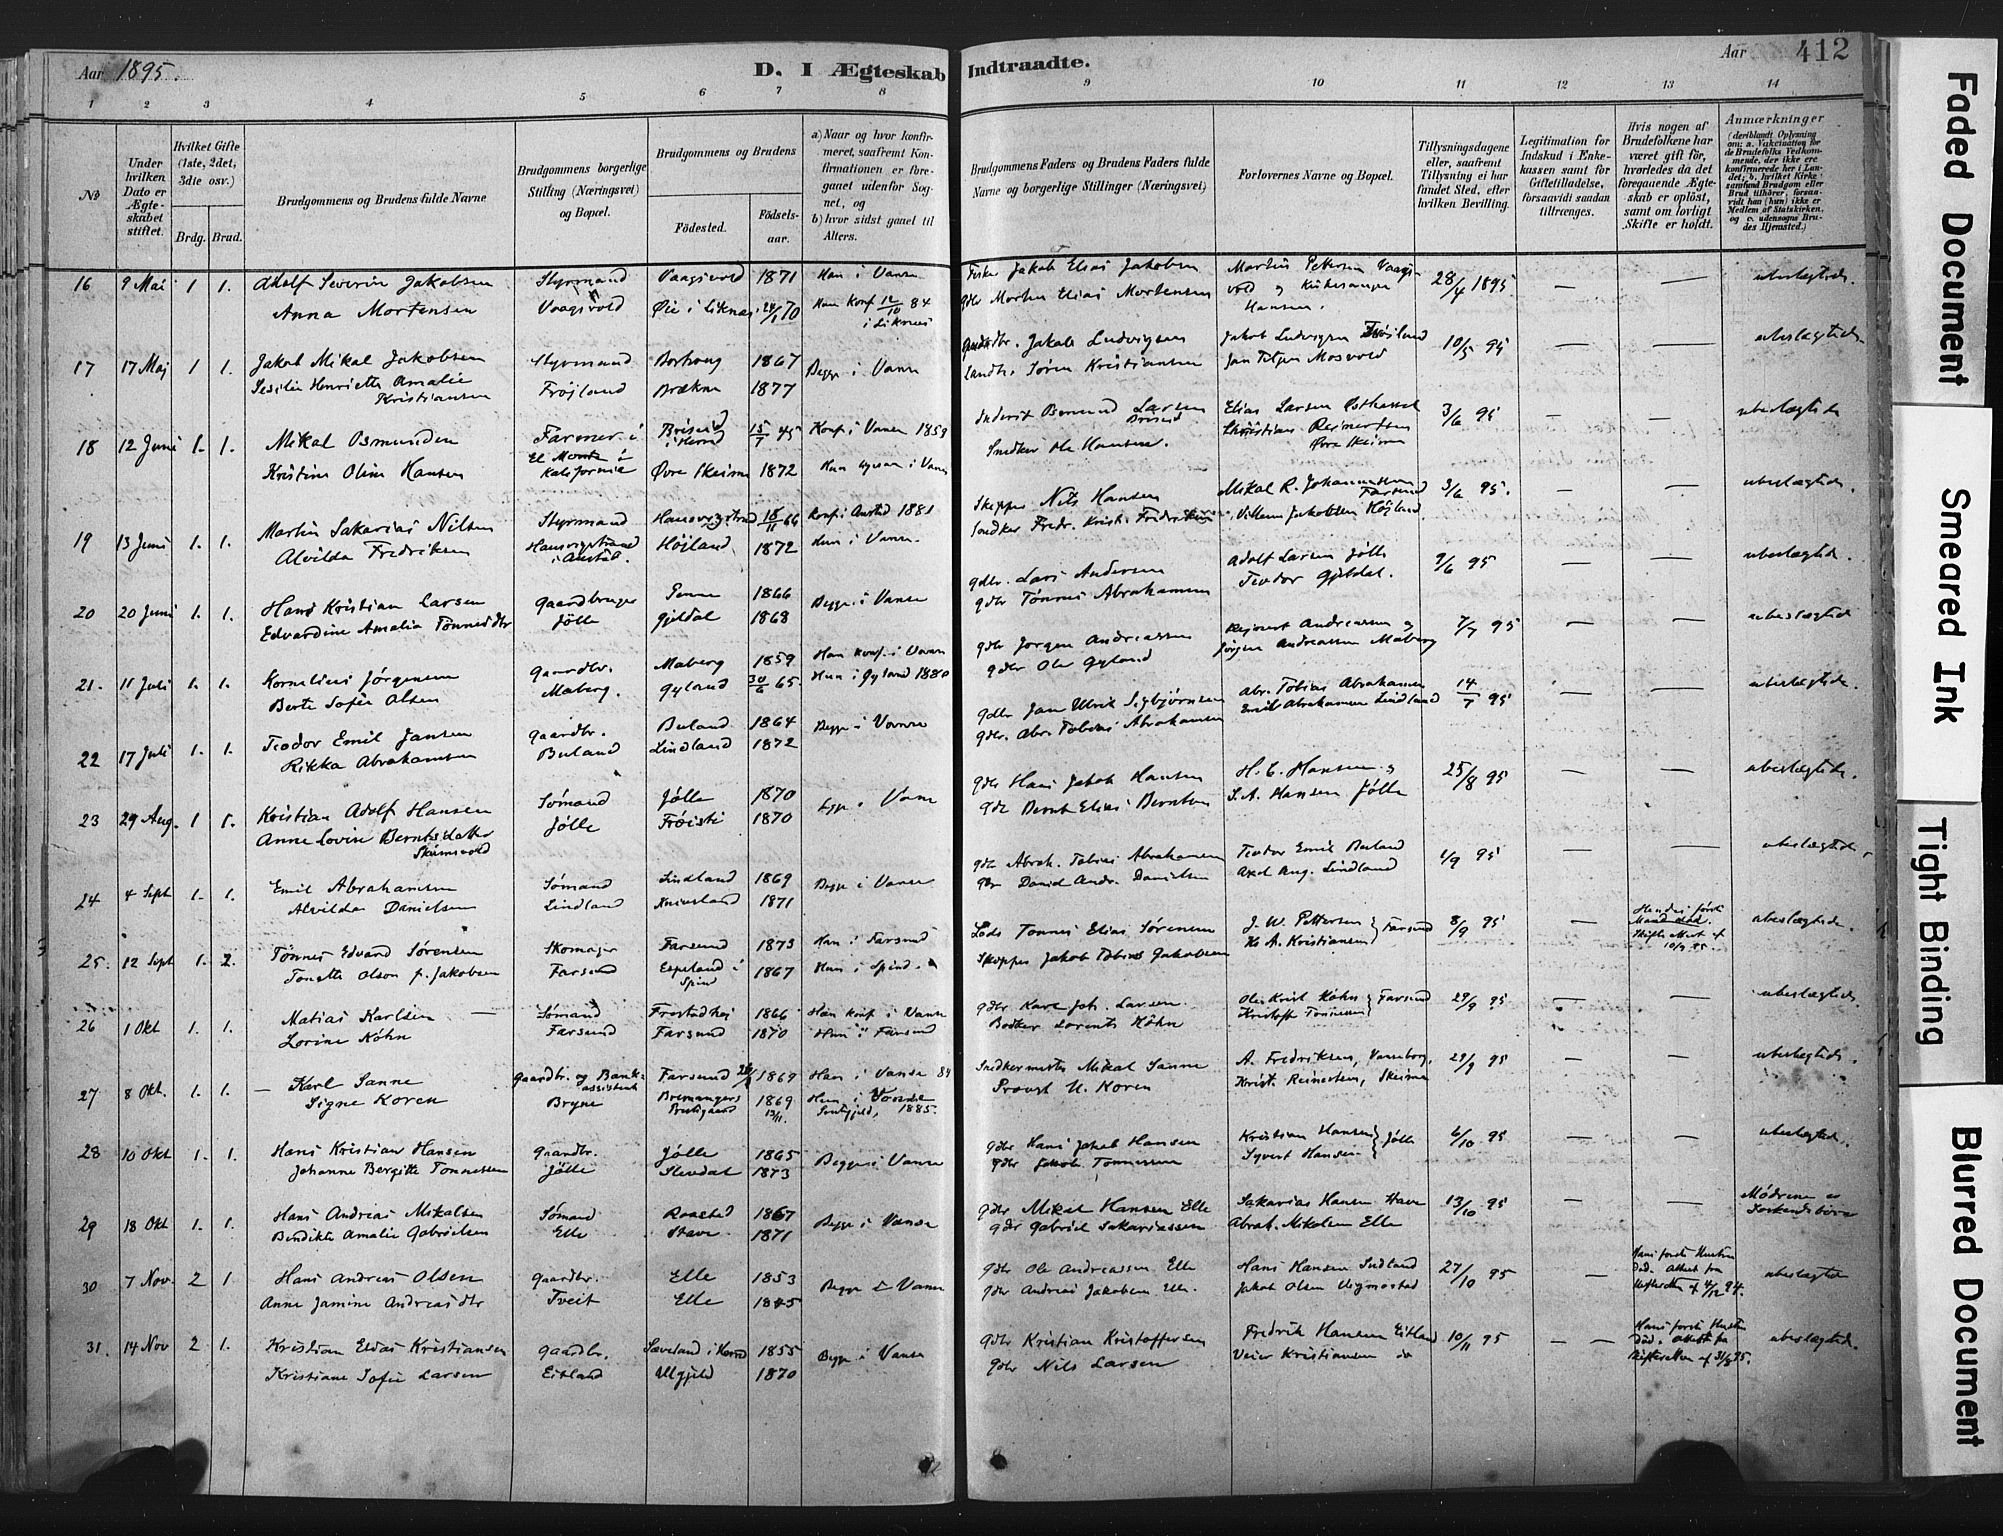 Aar 1895.
D. I Ægteskab Indtraadte.
Aar 412
1 2 3 4 5 6 7 8 9 10 11 12 13 14
No
Under hvilken Dato er Ægteskabet stiftet.
Hvilket Gifte (1ste, 2det, 3die osv.)
Brdg. Brud.
Brudgommens og Brudens fulde Navne
Brudgommens borgerlige Stilling (Næringsvei) og Bopæl.
Brudgommens og Brudens
Fødested.
Fødselsaar.
a) Naar og hvor konfirmeret, saafremt Konfirmationen er foregaaet udenfor Sognet, og
b) hvor sidst gaaet til Alters.
Brudgommens Faders og Brudens Faders fulde Navne og borgerlige Stillinger (Næringsvei)
Forlovernes Navne og Bopæl.
Tillysningsdagene eller, saafremt Tillysning ei har fundet Sted, efter hvilken Bevilling.
Legitimation for Indskud i Enkekassen samt for Giftetilladelse, forsaavidt saadan tiltrænges.
Hvis nogen af Brudefolkene har været gift før, hvorledes da det foregaaende Ægteskab er opløst, samt om lovligt Skifte er holdt.
Anmærkninger
(deriblandt Oplysning om: a. Vaccination for de Brudefolks Vedkommende, der ikke ere konfirmerede her i Landet; b. hvilket Kirkesamfund Brudgom eller Brud tilhører, forsaavidt han (hun) ikke er Medlem af Statskirken, og c. udensogns Brudes Hjemsted.)
16 9 Mai 1 1. Adolf Severin Jakobsen Styrmand Vaagsvold 1871 Han i Vanse Fisker Jakob Elias Jakobsen Martin Pettersen Vaagsvold og Kirkesanger Hansen. 28/4 1895 — — ubeslægtede.
Anna Mortensen Vaagsvold Øie i Liknes 24/1 70 Hun Konf 12/10 84 i Liknes gdbr Morten Elias Mortensen
17 17 Maj 1 1. Jakob Mikal Jakobsen Styrmand 1867 Begge i Vanse Gaardbr. Jakob Ludvigsen Jakob Ludvigsen Frøjland 10/5 95 — — ubeslægtede
Sesilie Henriette Amalie Kristiansen Frøjland Brækne 1877 Søren Kristiansen Jan Mosvold
18 12 Juni 1. 1. Mikal Osmunden Farmer i El Monte i Kalifornia Briseid i Herred 15/7 45 Konf i Vanse 1859 Inderst Osmund Larsen Briseid Elias Larsen Østhassel 3/6 95 — — ubeslægtede
Kristine Oline Hansen Øvre Skeime 1872 Hun i Vanse Snedker Ole Hansen. Christian Reinertsen Øvre Skeime
19 13 Juni 1. 1. Martin Sakarias Nilsen Styrmand Hausvigstrand 18/11 66 Konf. i Austad 1881 Skipper Nils Hansen Mikal R. Johannessen Farsund 3/6 95. — — ubeslægtede.
Alvilda Fredriksen Hausvigstrand i Austad. Højland. 1872 Hun i Vanse. Snedker Fredr. Krist. Fredriksen Villum Jakobsen Højland
20 20 Juni 1. 1. Hans Kristian Larsen Gaardbruger 1866 Begge i Vanse gdbr. Lars Andersen Adolf Larsen Jølle 9/6 95 — — ubeslægtede.
Edvardine Amalia Tønnesdtr Jølle Gjeldal 1868 gdbr Tønnes Abrahamsen Teodor Gjeldal.
21. 11 Juli 1. 1. Kornelius Jørgensen Gaardbr. Maberg 1859 Han Konf. i Vanse gdbr Jørgen Andreassen Rejnert Andreassen og 7/7 95 — — ubeslægtede
Berte Sofie Olsen Maberg. Gyland 30/6 65. Hun i Gyland 1880 gdbr Ole Gyland Jørgen Andreassen Maberg
22 17 Juli 1. 1. Teodor Emil Jansen Gaardbr. Buland 1864 Begge i Vanse gdbr Jan Ulrik Sigbjørnsen Abr. Tobias Abrahamsen 14/7 95 — — ubeslægtede.
Rikka Abrahamsen Buland Lindland 1872 gdbr. Abr. Tobias Abrahamsen Emil Abrahamsen Lindland
23 29 Aug. 1 1. Kristian Adolf Hansen Sømand Jølle 1870 Begge i Vanse gdbr Hans Jakob Hansen H. C. Hansen og 25/8 95 — — ubeslægtede.
Anne Lovise Berntsdatter Skeimsvold Jølle Frøisti 1870 gdbr Bernt Elias Berntsen S. A. Hansen Jølle
24 4 Sept 1. 1. Emil Abrahamsen Sømand Lindland 1869 Begge i Vanse gdbr Abrah. Tobias Abrahamsen Teodor Emil Buland 1/9 95 — — ubeslægtede.
Alvilda Danielsen Lindland 1871 gdbr Daniel Andr. Danielsen Axel Aug. Lindland
25. 12 Sept 1. 2. Tønnes Edvard Sørensen Skomager Farsund 1873 Han i Farsund Lods Tønnes Elias Sørensen J. W. Pettersen } Farsund 8/9 95 — Hendes første Mand død. Skifte Attest af 10/9 95. ubeslægtede.
Tonette Olson f. Jakobsen Farsund Espeland i Spind 1867 Hun i Spind. Skipper Jakob Tobias Jakobsen A. Kristiansen
26 1 Okt 1. 1. Matias Karlsen Sømand Frestadhei 1866 Han konf i Vanse gdbr Karl Joh. Larsen. Ole Krist Køhn } Farsund 29/9 95 — — ubeslægtede.
Lovine Køhn Farsund Farsund 1870 Hun i Farsund Bødker Lorents Køhn Kristoffer Tønnesen
27 8 Okt. 1. 1. Karl Sanne Gaardbr. og Bankassistent Farsund 1869 Han i Vanse 84 Snedkermester Mikal Sanne A. Fredriksen, Vanseborg, 29/9 95 — — ubeslægtede.
Signe Koren Bryne Bremangers Prestegaard 1869 13/11 Hun i 1885. Provst U. Koren Krist. Reinertsen, Skeime
28 10 Okt 1. 1. Hans Kristian Hansen Gaardbr. Jølle 1865 Begge i Vanse gdbr Hans Jakob Hansen Kristian Hansen } Jølle 6/10 95 — — ubeslægtede.
Johanne Bergitte Tønnessen Jølle Slevdal 1873 gdbr Jakob Tønnessen Syvert Hansen
29 18 Okt 1. 1. Hans Andreas Mikalsen Sømand 1867 Begge i Vanse gdbr Mikal Hansen Elle Sakarias Hansen Have 13/10 95 — — Mødrene er Søskendebørn
Bendikte Amalie Gabrielsen Elle 1871 gdbr Gabriel Sakariassen Abrah. Mikalsen Elle
30 7 Nov. 2 1 Hans Andreas Olsen Gaardbr. Elle 1853 Begge i Vanse gdbr Ole Andreassen Elle Hans Hansen Indland 27/10 95 — Hans første Hustru død. Attest fra Skifteretten af 4/12 94. ubeslægtede
Anne Jamine Andreasdtr Tveit Elle 1845 gdbr Andreas Jakobsen Elle. Jakob Olsen Vigmostad
31. 14 Nov 2 1. Kristian Elias Kristiansen Gaardbr. Sæveland i Herred 1855 Begge i Vanse gdbr Kristian Kristoffersen Fredrik Hansen Eitland 10/11 95 — — Hans første Hustru død. Attest fra Skifteretten af 31/8 95. ubeslægtede.
Kristiane Sofie Larsen Eitland Ullgjeld 1870 gdbr Nils Larsen Veier Kristiansen do
Faded Document
Smeared Ink
Tight Binding
Blurred Document